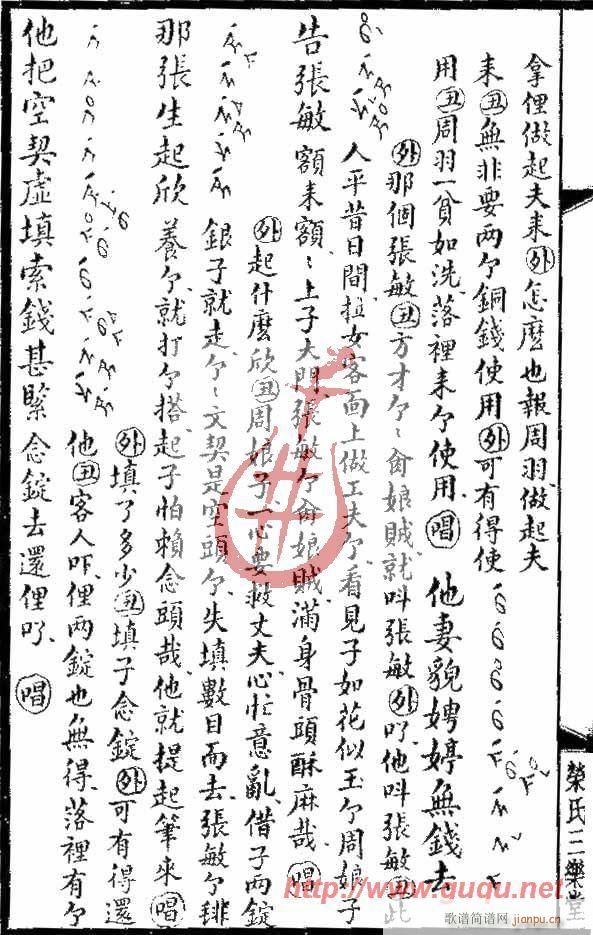 拿俚做起夫来㊣外怎麽也報周羽做起夫
来丑無非要两ケ銅錢使用外可有得使
用丑周羽一貧如洗落裡来ケ使用唱他妻貌娉婷無錢去
外那個張敏丑方才ケ〻畲娘賊就呌張敏外吖他呌張敏丑此
人平昔日間拉女客面上做工夫ケ看見子如花似玉ケ周娘子
告張敏額来額〻上子大門張敏ケ畲娘賊滿身骨頭酥麻哉唱
外起什麽欣丑周娘子一心要救丈夫心忙意亂借子两錠
銀子就走ケ〻文契是空頭ケ失填數目而去張敏ケ
那張生起欣養ケ就打ケ搭起子怕賴念頭哉他就提起筆來唱
外填了多少丑填子念錠外可有得還
他丑客人吓俚两錠也無得落裡有ケ
他把空契虚填索錢甚緊念錠去還俚吖唱
榮氏三樂堂
http://www.guqu.net
歌谱简谱网
jianpu.cn